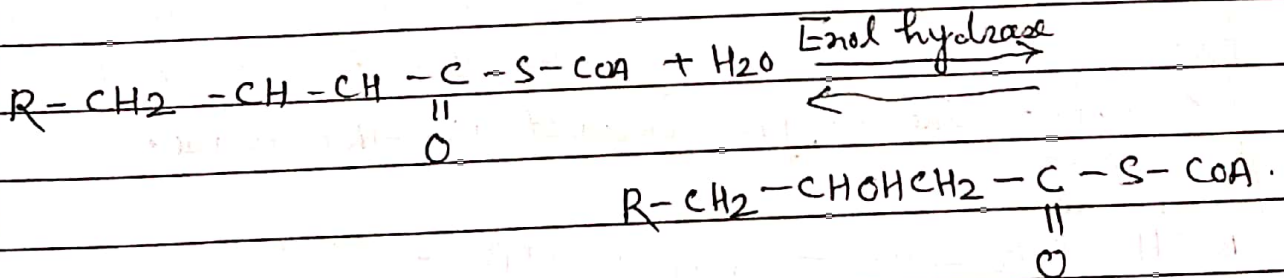 R-CH2-CH-CH-C-S-COA + H2O Enol hydrase
||
O
R-CH2-CHOHCH2-C-S-COA.
||
O